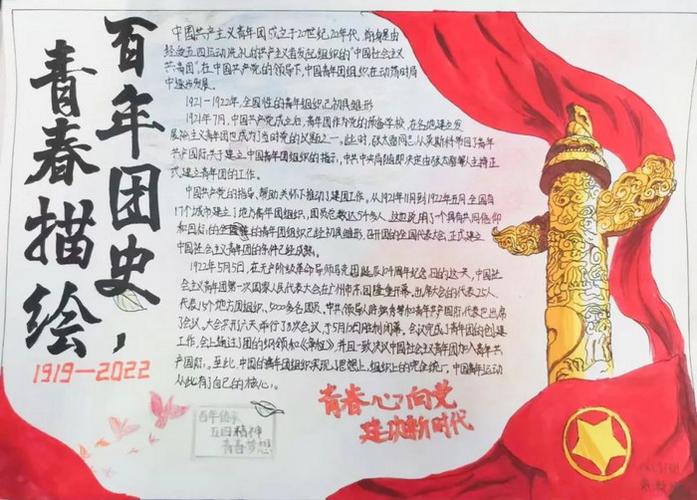 百年团史，
青春描绘
1919—2022
中国共产主义青年团成立于20世纪20年代，前身是由
五四运动洗礼的共产主义者发起组织的“中国社会主义
青年团”，在中国共产党的领导下，中国青年团组织在动荡时局
中逐步发展。
1921—1922年，全国性的青年组织已初具雏形
1921年7月，中国共产党成立后，青年团作为党的预备学校，在各地建立发
展社会主义青年团也成为了当时党的议题之一。此时，张太雷同志从莫斯科带回了青年
共产国际关于建立中国青年团组织的指示，中共中央局随即决定由张太雷等人主持正
式建立青年团的工作。
中国共产党的指导、帮助、关怀下推动了建团工作，从1921年11月到1922年五月，全国有
17个城市建立了地方青年团组织，团员总数达5千多人，这也说明了一个具有共同信仰
和目标的全国性的青年团组织已经初具雏形，召开团的全国代表大会，正式建立
中国社会主义青年团的条件已经成熟。
1922年5月5日，在无产阶级革命导师马克思诞辰104周年纪念日的这一天，中国社
会主义青年团第一次国家人民代表大会在广州市东园隆重开幕，出席大会的代表25人，
代表15个地方团组织、5000多名团员，中共领导人
了会议，大会开六天举行了8次会议，于5月10日胜利闭幕。会议完成了青年团的创建
工作，会上通过了团的纲领和《章程》，并且一致决议中国社会主义青年团加入青年共
产国际。至此，中国的青年团组织实现了思想上、组织上的完全统一，中国青年运动
从此有了自己的核心。
百年传承
五四精神
青春梦想
青春心向党
建功新时代